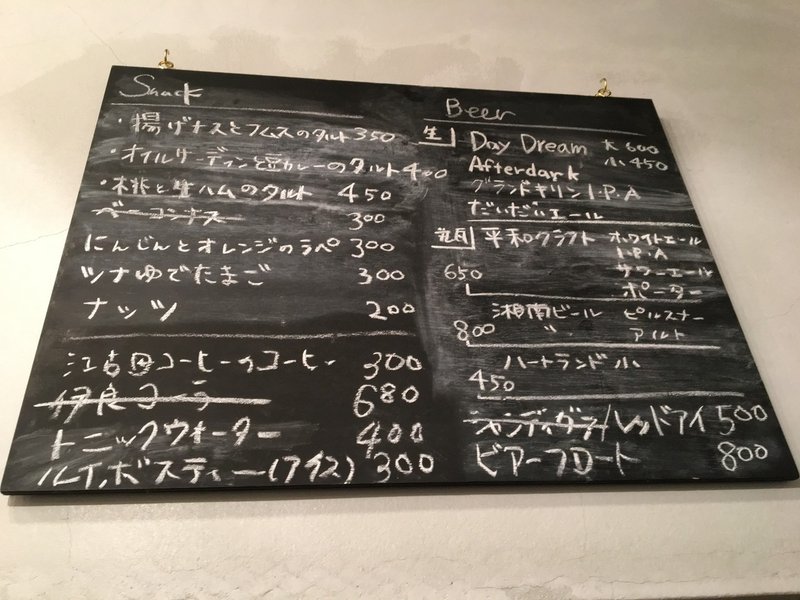 Snack
・揚げナスとフムスのタルト 350
・オイルサーディンと豆カレーのタルト 400
・桃と生ハムのタルト 450
ベーコンナス 300
にんじんとオレンジのラペ 300
ツナゆでたまご 300
ナッツ 200
江古田コーヒーのコーヒー 300
伊良コーラ 680
トニックウォーター 400
ルイボスティー(アイス) 300
Beer
生 Day Dream 大 600
Afterdark 小 450
グランドキリン I.P.A
だいだいエール
瓶 平和クラフト ホワイトエール
I.P.A
650 サワーエール
ポーター
湘南ビール ピルスナー
800 〃 アルト
ハートランド 小
450
シャンディガフ/レッドアイ 500
ビアーフロート 800